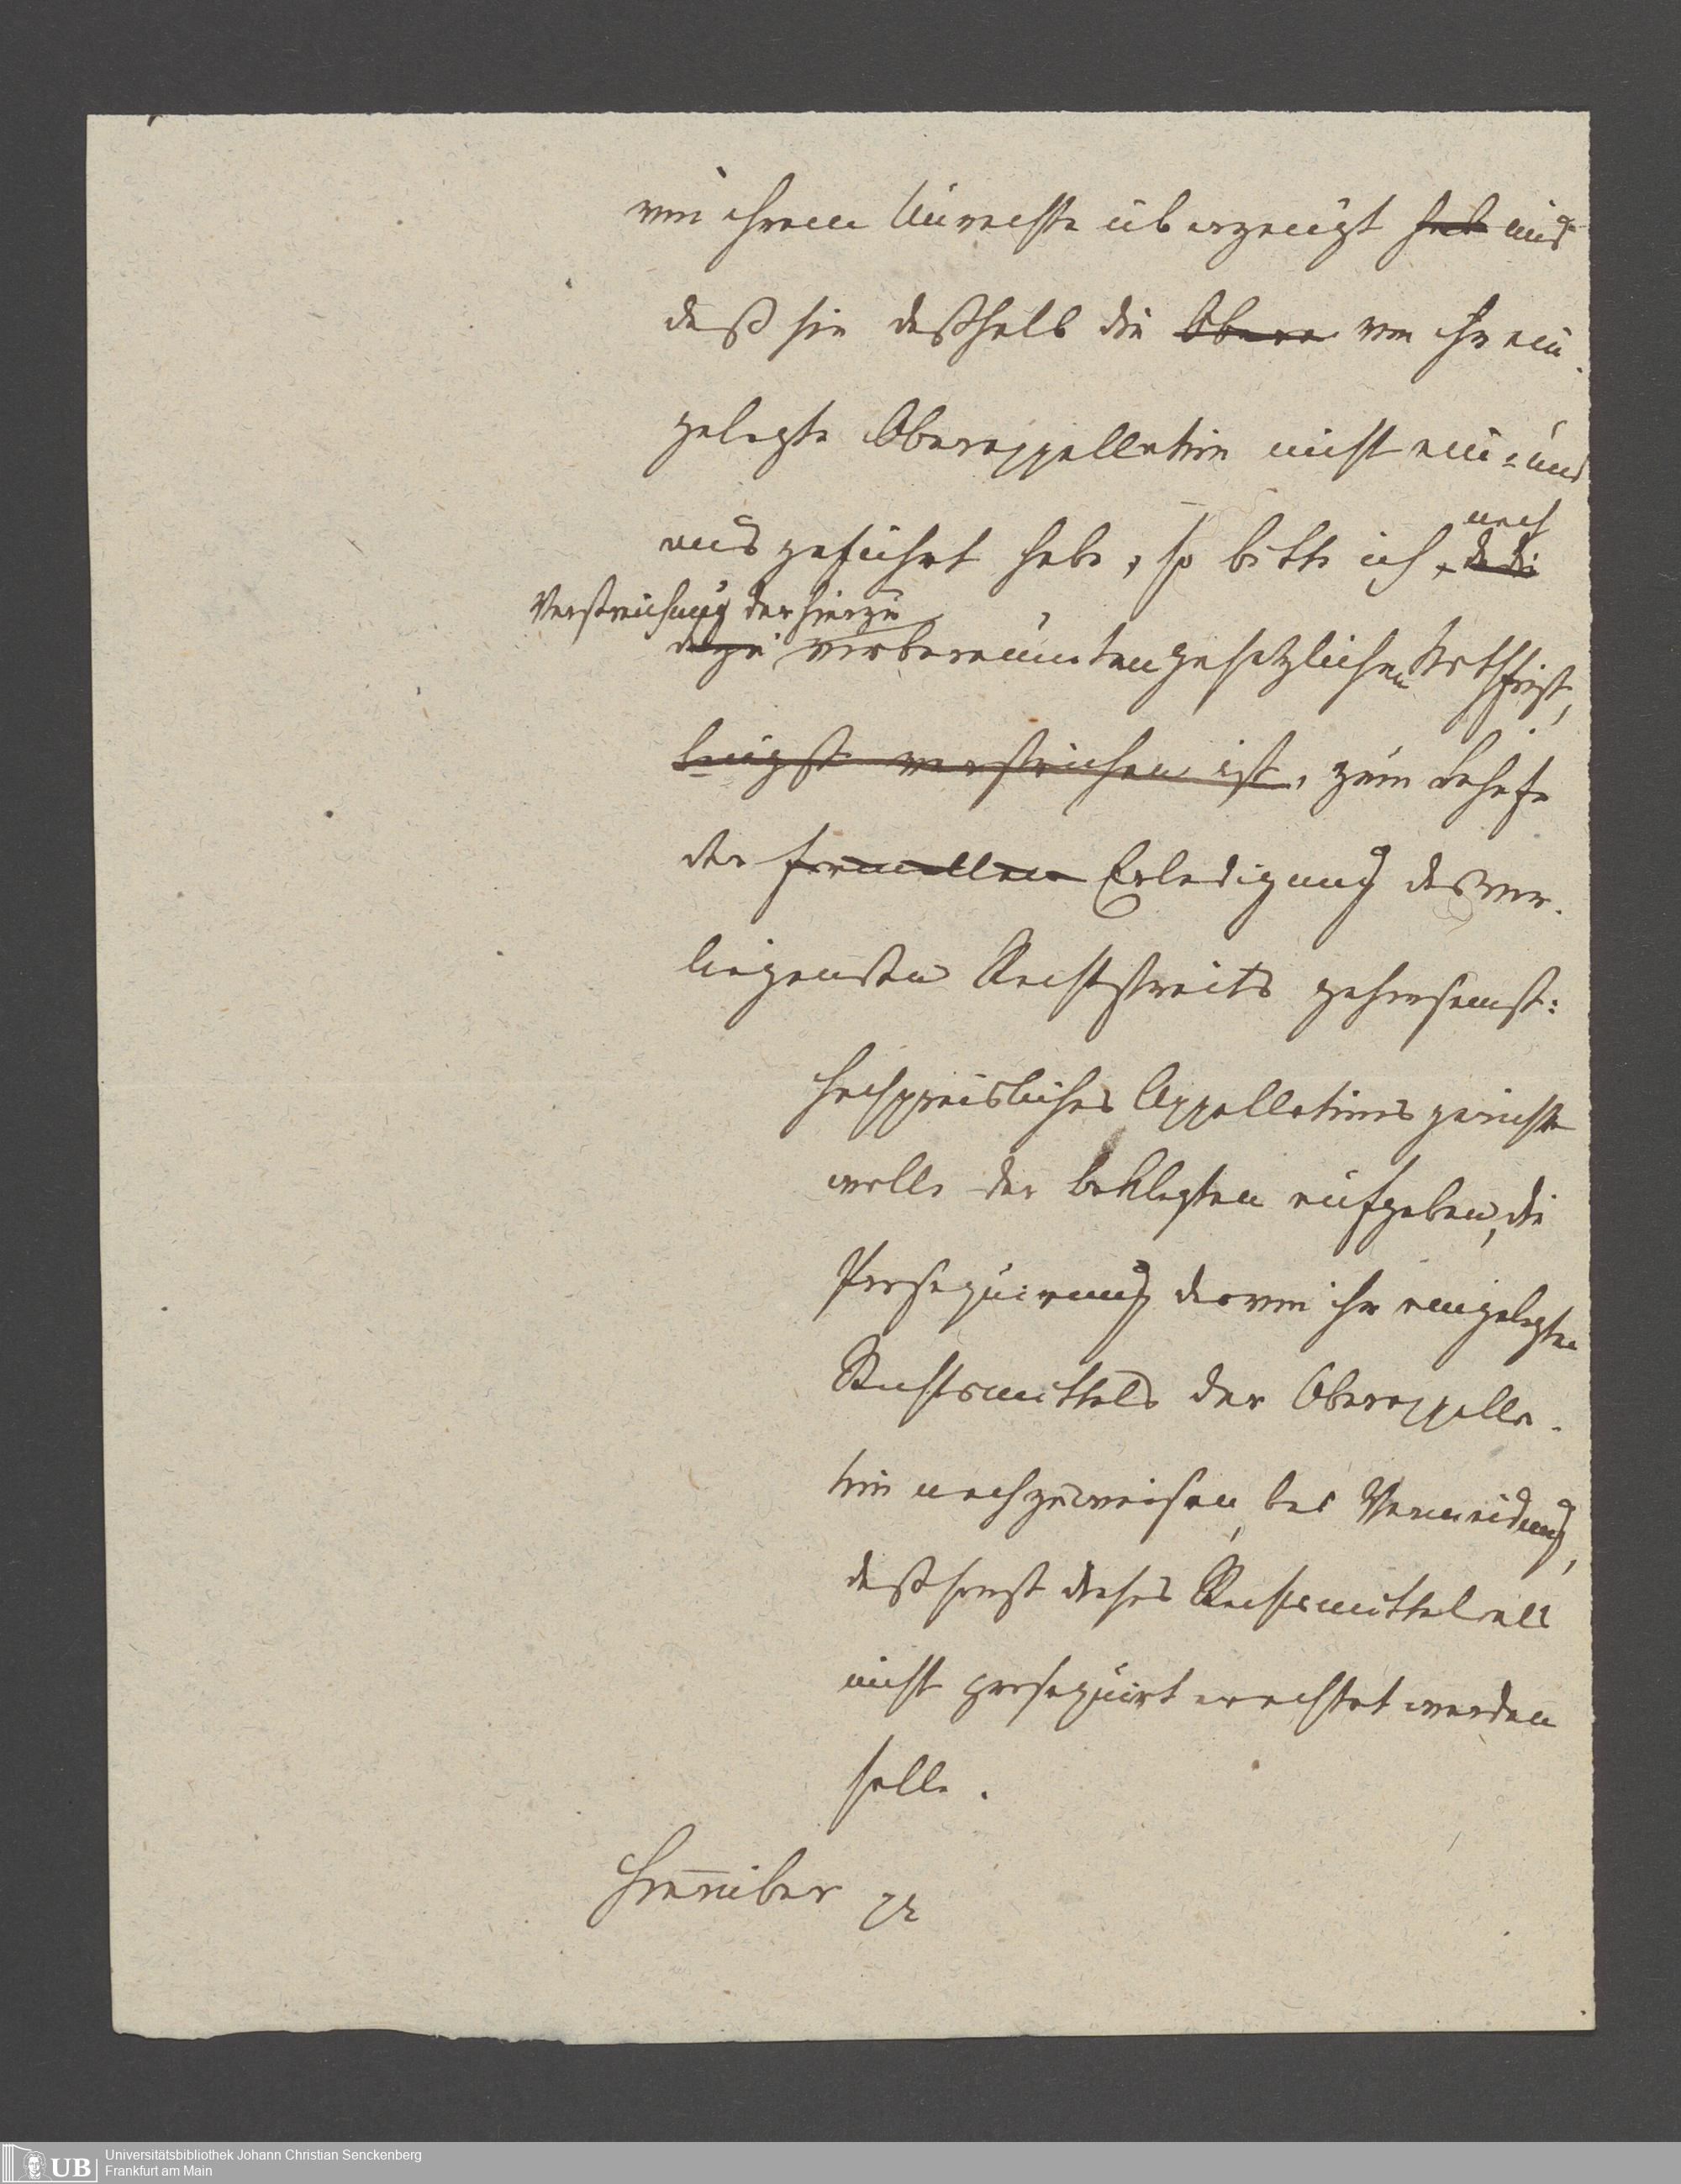 von ihrem Unrechte überzeugt hab und
daß sie deßhalb die Obera von ihr ein-
gelegte Oberappellation nicht ein- und
nach
ausgeführt habe, so bitte ich, da die
Verstreichung der hierzu
dazu anberaumten gesetzlichen Nothfrist,
längst verstrichen ist, zum Behufe
der formellen Erledigung des vor-
liegenden Rechtsstreits gehorsamst:
Hochpreisliches Appellationsgericht
wolle der Beklagten aufgeben, die
Prosequirung des von ihr eingelegten
Rechtsmittels der Oberappella-
tion nachzuweisen, bei Vermeidung,
daß sonst dieses Rechtsmittel als
nicht prosequirt erachtet werden
solle.
Hierüber pp